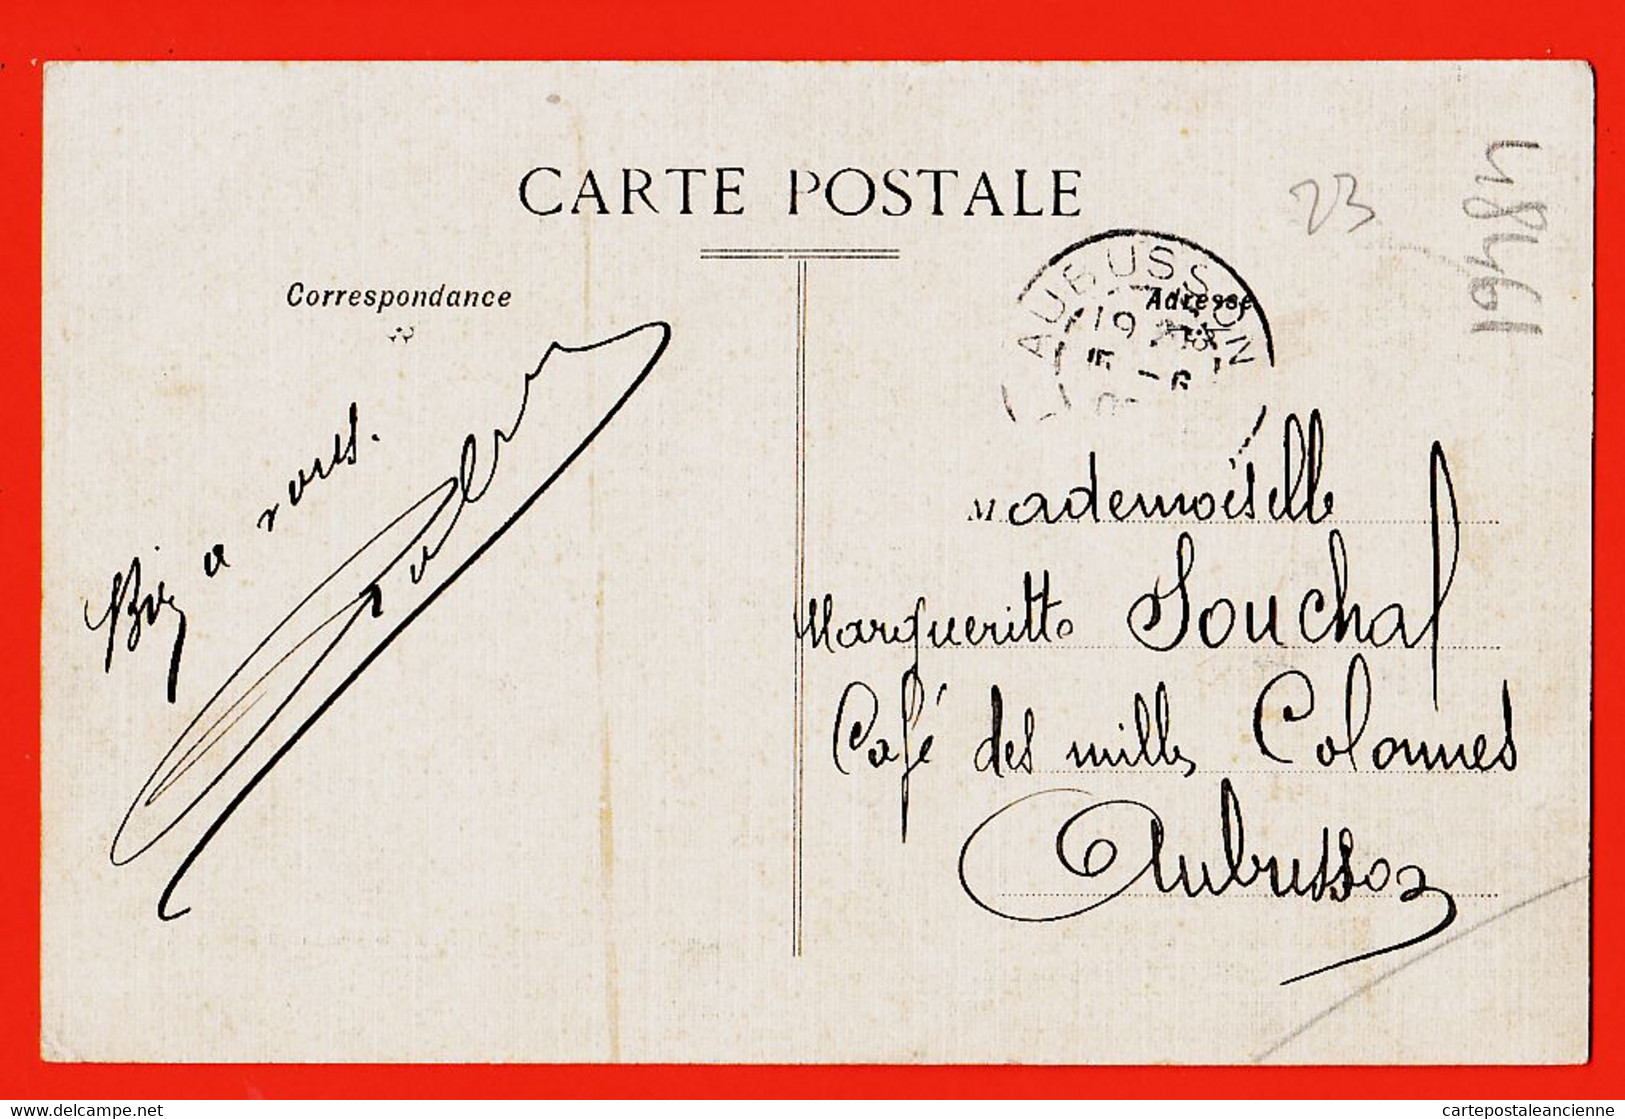 CARTE POSTALE
23
Correspondance
Adresse
AUBUSSON
19
à vous.
Mademoiselle
Margueritte Souchal
Café des milles Colonnes
Aubusson
www.delcampe.net
cartepostaleancienne